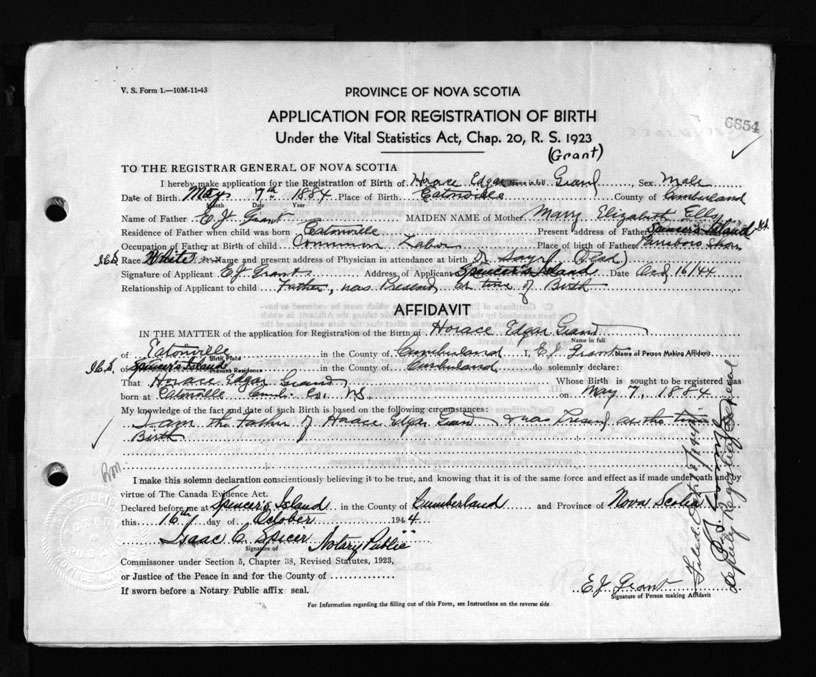 V. S. Form 1.—10M-11-43
PROVINCE OF NOVA SCOTIA
APPLICATION FOR REGISTRATION OF BIRTH
6654
Under the Vital Statistics Act, Chap. 20, R. S. 1923
(Grant)
TO THE REGISTRAR GENERAL OF NOVA SCOTIA
I hereby make application for the Registration of Birth of Horace Edgar Grant Sex Male
Name in full
Date of Birth May 7th 1884 Place of Birth Eatonville County of Cumberland
Month Date Year
Name of Father E. J. Grant MAIDEN NAME of Mother Mary Elizabeth
Residence of Father when child was born Eatonville Present address of Father Spencer's Island N.S.
Occupation of Father at Birth of child Common Labor Place of birth of Father Parrsboro Shore
I.C.S. Race White Name and present address of Physician in attendance at birth Dr. (Dead)
Signature of Applicant E J Grant Address of Applicant Spencer's Island Date Oct 16/44
Relationship of Applicant to child Father, was Present at time of Birth
AFFIDAVIT
IN THE MATTER of the application for Registration of the Birth of Horace Edgar Grant
Name in full
of Eatonville in the County of Cumberland I, E. J. Grant
Birth Place Name of Person Making Affidavit
I.C.S. of Spencer's Island in the County of Cumberland do solemnly declare:
Present Residence
That Horace Edgar Grant Whose Birth is sought to be registered was
born at Eatonville Cumb. Co. N.S. on May 7, 1884
My knowledge of the fact and date of such Birth is based on the following circumstances:
I am the Father of Horace Edgar Grant & was Present at the time
Birth
I make this solemn declaration conscientiously believing it to be true, and knowing that it is of the same force and effect as if made under oath and by
virtue of The Canada Evidence Act.
Declared before me at Spencer's Island in the County of Cumberland and Province of Nova Scotia
this 16th day of October 1944
Isaac C. Spicer Notary Public
Signature of
Commissioner under Section 5, Chapter 38, Revised Statutes, 1923,
or Justice of the Peace in and for the County of
If sworn before a Notary Public affix seal.
E J Grant
Signature of Person making Affidavit
For Information regarding the filling out of this Form, see Instructions on the reverse side
Deputy Registrar General